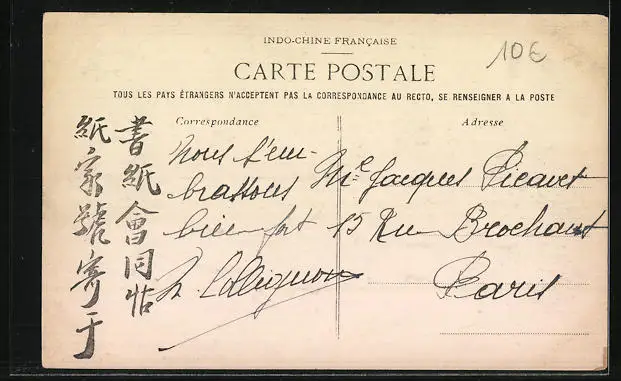 INDO-CHINE FRANÇAISE
10€
CARTE POSTALE
TOUS LES PAYS ÉTRANGERS N'ACCEPTENT PAS LA CORRESPONDANCE AU RECTO, SE RENSEIGNER A LA POSTE
Correspondance
Adresse
書紙會同帖
紙家號寄于
Nous t'em-
brassons
bien fort
Mr Jacques Picavet
15 Rue Brochant
Paris